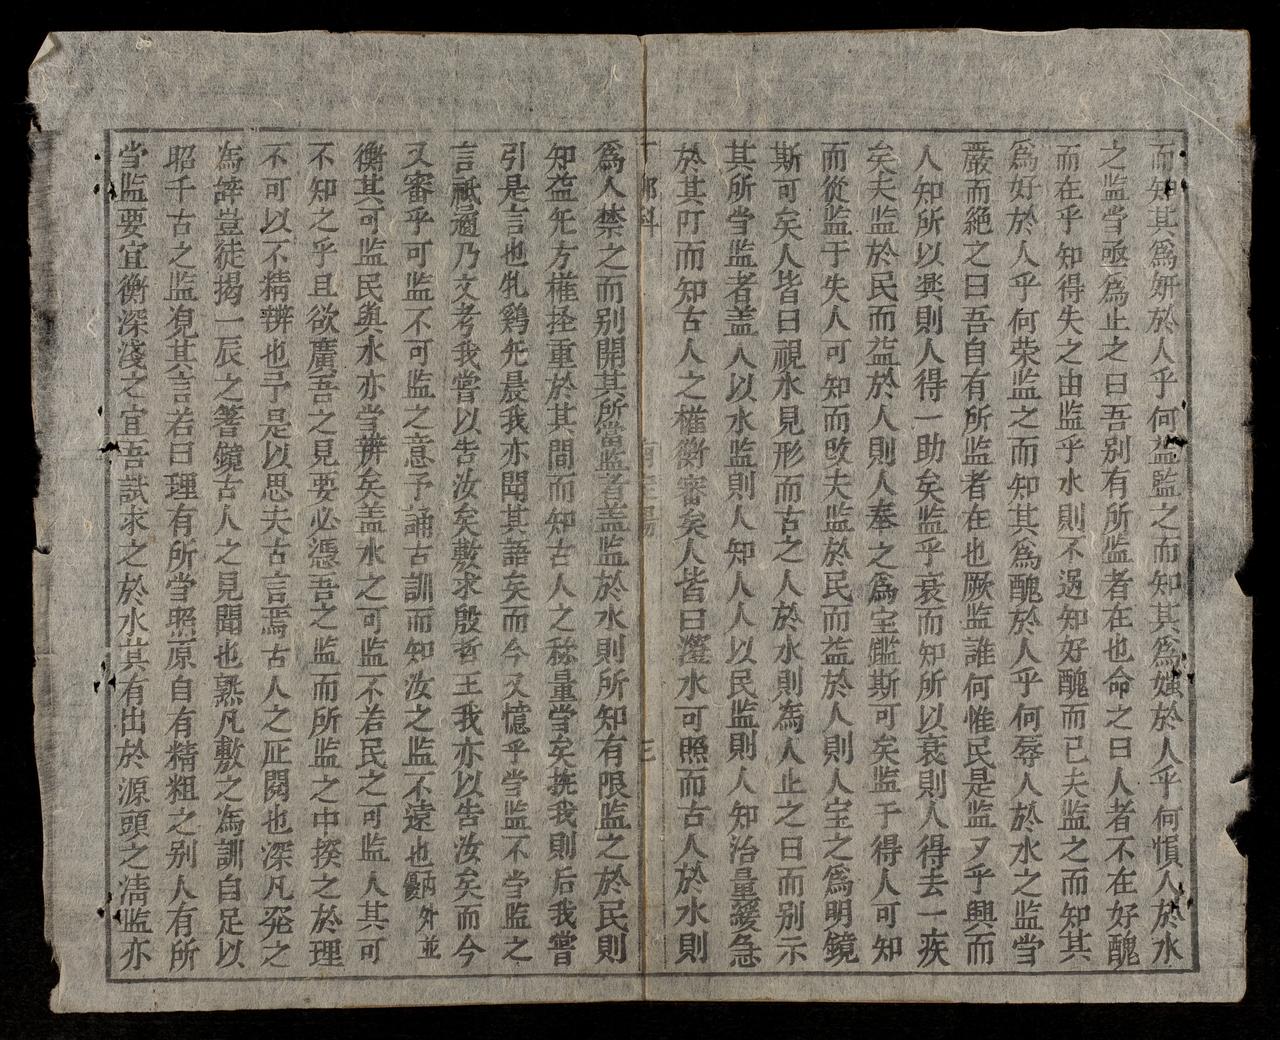 而知其為妍於人乎何益監之而知其為媸於人乎何慎人於水
之監當亟為止之曰吾别有所監者在也命之曰人者不在好醜
而在乎知得失之由監乎水則不過知好醜而已夫監之而知其
為好於人乎何荣监之而知其為醜於人乎何辱人於水之监當
嚴而絶之曰吾自有所监者在也厥监誰何惟民是监又乎興而
人知所以興則人得一助矣监乎衰而知所以衰則人得去一疾
矣夫监於民而益於人則人奉之為宝鑑斯可矣监于得人可知
而從监于失人可知而改夫监於民而益於人則人宝之為明鏡
斯可矣人皆曰視水見形而古之人於水則為人止之曰而别示
其所当监者盖人以水监則人知人人以民监則人知治量緩急
於其所而知古人之權衡審矣人皆曰瀅水可照而古人於水則
三
為人禁之而别開其所當监者盖监於水則所知有限监之於民則
知益无方權拴重於其間而知古人之称量當矣撫我則后我嘗
引是言也牝鷄无晨我亦聞其語矣而今又憶乎当监不当监之
言祗遹乃文考我嘗以告汝矣敷求殷哲王我亦以告汝矣而今
又審乎可监不可监之意予誦古訓而知汝之监不遠也両外並優
衡其可监民與水亦当辨矣盖水之可监不若民之可监人其可
不知之乎且欲廣吾之見要必憑吾之监而所监之中揆之於理
不可以不精辨也予是以思夫古言焉古人之疋閱也深凡発之
為辞豈徒揭一辰之蓍鏡古人之見聞也熟凡敷之為訓自足以
昭千古之监覔其言若曰理有所当照原自有精粗之别人有所
当监要宜衡深淺之宜吾試求之於水其有出於源頭之清监亦